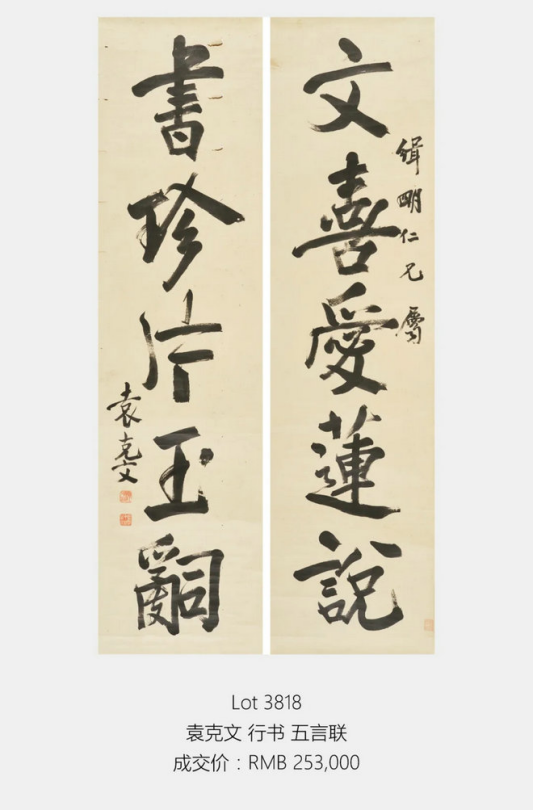 文喜愛蓮說
緝明仁兄屬
書珍片玉嗣
袁克文
Lot 3818
袁克文 行书 五言联
成交价：RMB 253,000